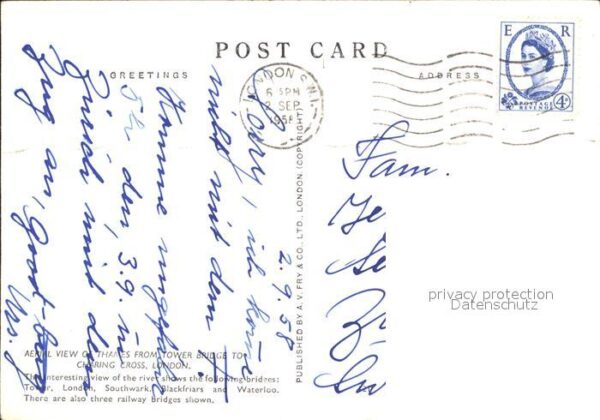 POST CARD
GREETINGS
ADDRESS
E R
POSTAGE
REVENUE
4D
LONDON S.W.1.
6 PM
2 SEP
1958
2.9.58
Sorry, ich komme
nicht mit dem
komme ungefähr
den, 3.9. in
Zürich mit dem
Zug an, Good-bye
Fam.
privacy protection
Datenschutz
PUBLISHED BY A. V. FRY & CO., LTD., LONDON. (COPYRIGHT)
AERIAL VIEW OF THAMES FROM TOWER BRIDGE TO
CHARING CROSS, LONDON.
The interesting view of the river shows the following bridges:
Tower, London, Southwark, Blackfriars and Waterloo.
There are also three railway Bridges shown.